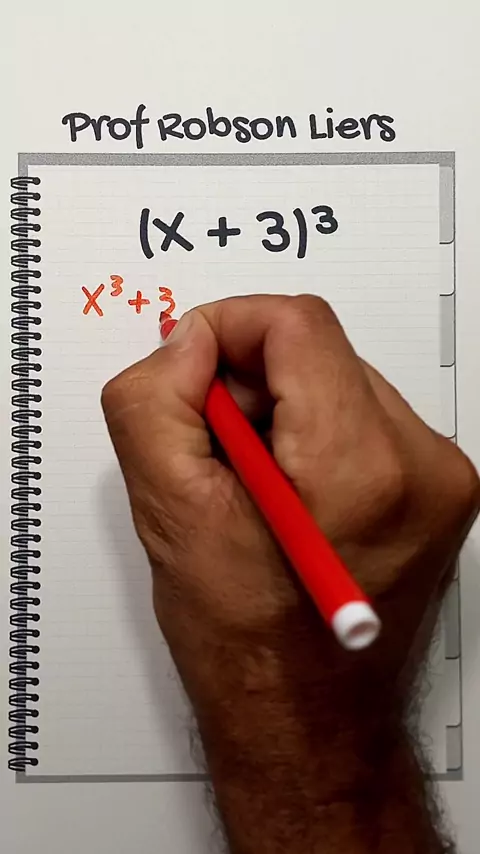 Prof Robson Liers
(x + 3)³
x³ + 3